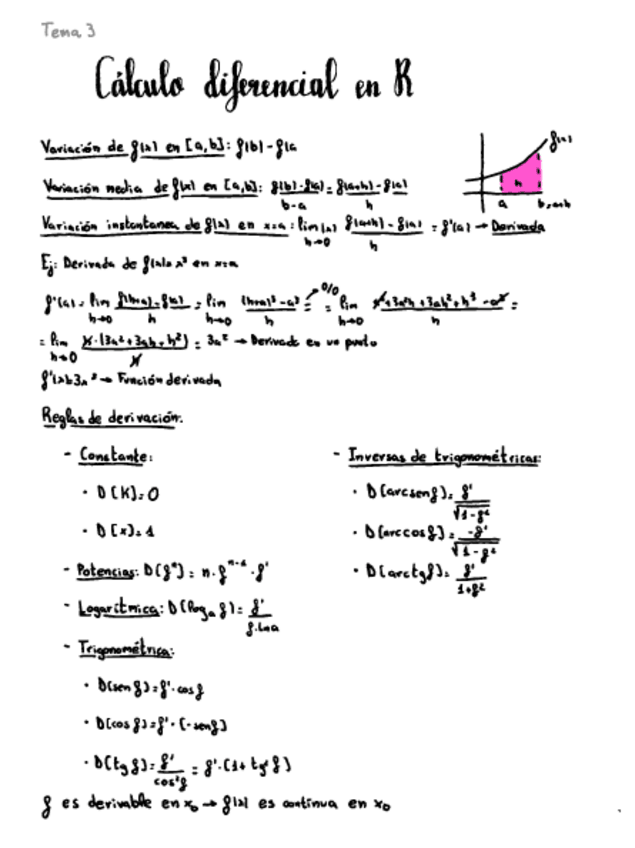 Tema 3
Cálculo diferencial en R
Variación de f(x) en [a,b]: f(b)-f(a
Variación media de f(x) en [a,b]: f(b)-f(a)/b-a = f(a+h)-f(a)/h
f(x)
h
a b=a+h
Variación instantanea de f(x) en x=a: lim f(a+h)-f(a)/h = f'(a) → Derivada
h→0
Ej: Derivada de f(x)=x³ en x=a
f'(a)= lim f(h+a)-f(a)/h = lim (h+a)³-a³/h = 0/0 = lim a³+3a²h+3ah²+h³-a³/h =
h→0 h→0 h→0
= lim h·(3a²+3ah+h²)/h = 3a² → Derivada en un punto
h→0
f'(x)=3x² → Función derivada
Reglas de derivación:
- Constante:
· D[K]=0
· D[x]=1
- Potencias: D[fⁿ]= n·fⁿ⁻¹·f'
- Logarítmica: D[logₐ f]= f'/f·Lna
- Trigonométrica:
· D[sen f]=f'·cos f
· D[cos f]=f'·(-sen f)
· D[tg f]= f'/cos²f = f'·(1+tg²f)
- Inversas de trigonométricas:
· D[arcsen f]= f'/√1-f²
· D[arccos f]= -f'/√1-f²
· D[arctg f]= f'/1+f²
f es derivable en x₀ → f(x) es contínua en x₀